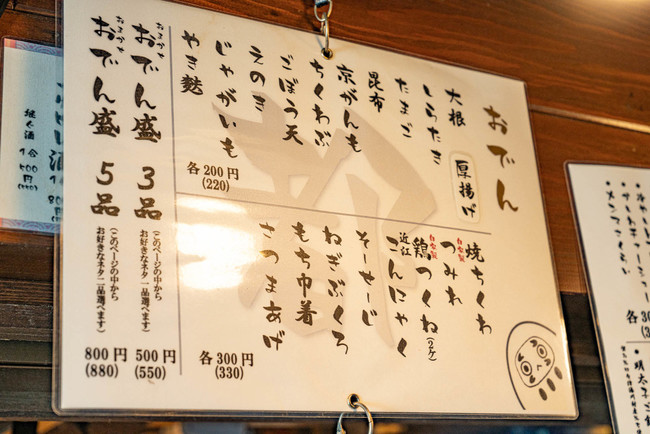 おでん
厚揚げ
大根
しらたき
たまご
昆布
京がんも
ちくわぶ
ごぼう天
えのき
じゃがいも
やき麩
各200円
(220)
焼ちくわ
自家製
つみれ
自家製
鶏つくね(2ケ)
近江
こんにゃく
そーせーじ
ねぎぶくろ
もち巾着
さつまあげ
各300円
(330)
おまかせ
おでん盛 3品
(このページの中から
お好きなネタ二品選べます)
500円
(550)
おまかせ
おでん盛 5品
(このページの中から
お好きなネタ二品選べます)
800円
(880)